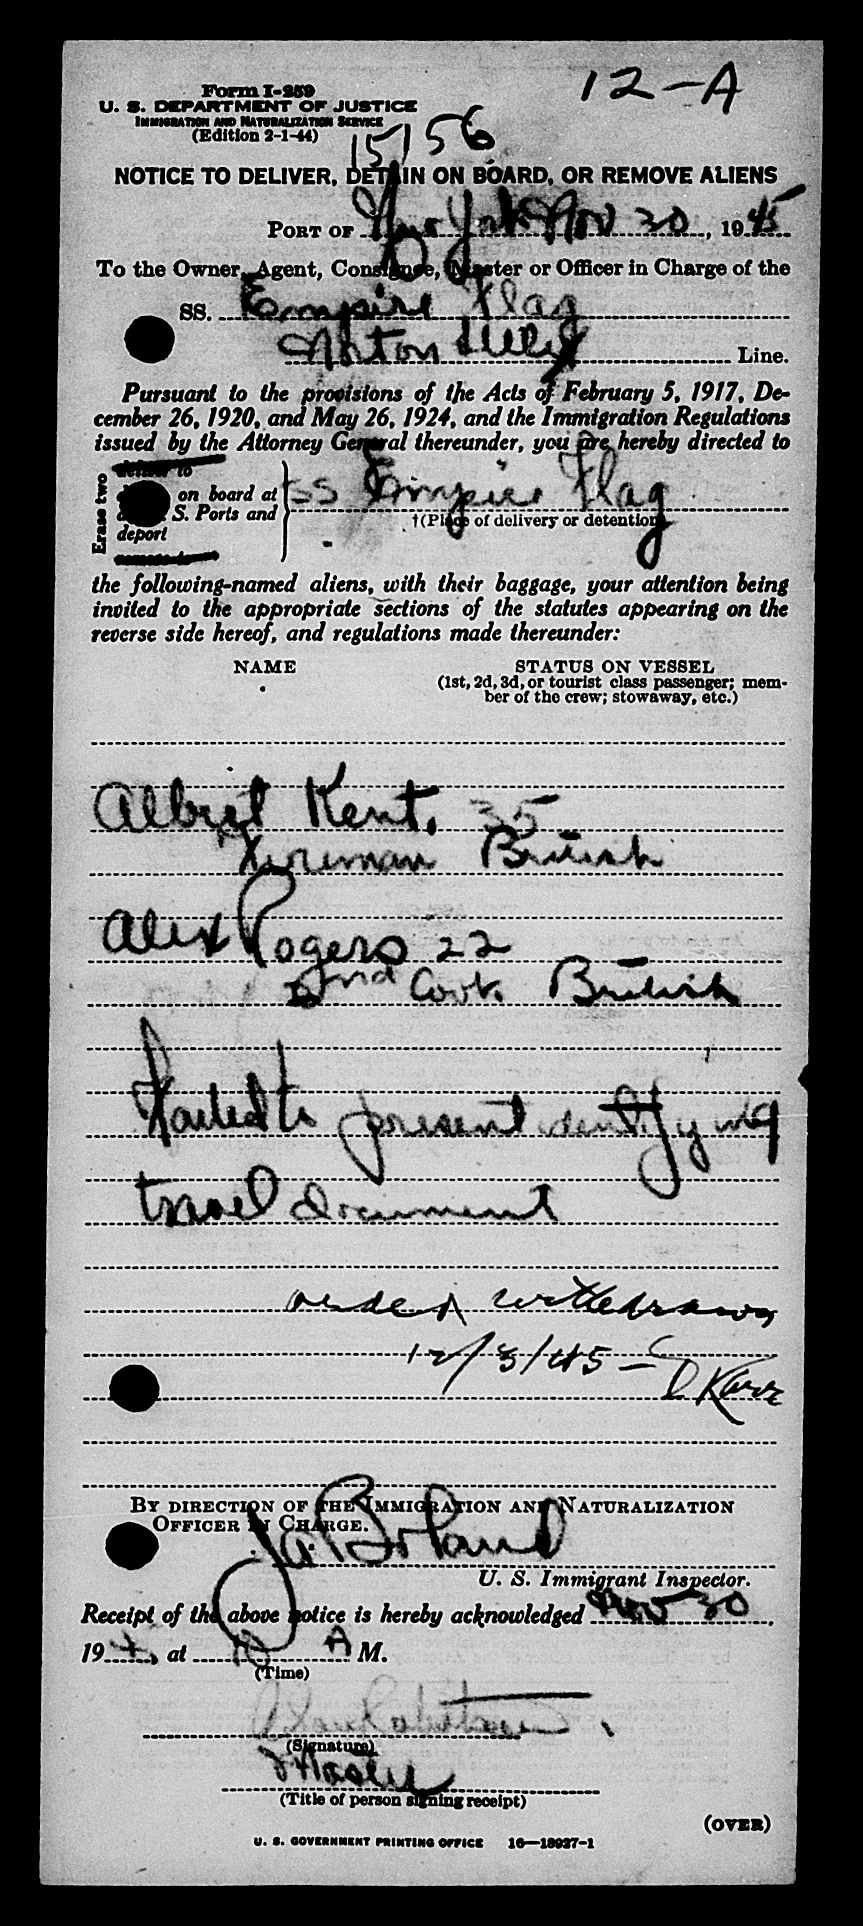 12-A
Form I-259
U. S. DEPARTMENT OF JUSTICE
IMMIGRATION AND NATURALIZATION SERVICE
(Edition 2-1-44)
15156
NOTICE TO DELIVER, DETAIN ON BOARD, OR REMOVE ALIENS
PORT OF New York Nov 30, 1945
To the Owner, Agent, Consignee, Master or Officer in Charge of the
SS. Empire Flag
Norton Lilly Line.
Pursuant to the provisions of the Acts of February 5, 1917, De-
cember 26, 1920, and May 26, 1924, and the Immigration Regulations
issued by the Attorney General thereunder, you are hereby directed to
Erase two
deliver to
on board at
S. Ports and
deport
SS Empire Flag
†(Place of delivery or detention)
the following-named aliens, with their baggage, your attention being
invited to the appropriate sections of the statutes appearing on the
reverse side hereof, and regulations made thereunder:
NAME STATUS ON VESSEL
(1st, 2d, 3d, or tourist class passenger; mem-
ber of the crew; stowaway, etc.)
Albert Kent, 35
Fireman British
Alex Rogers 22
2nd Cook British
Failed to present identifying
travel document
order withdrawn
12/3/45 - Karr
BY DIRECTION OF THE IMMIGRATION AND NATURALIZATION
OFFICER IN CHARGE.
U. S. Immigrant Inspector.
Receipt of the above notice is hereby acknowledged Nov 30,
19 , at A M.
(Time)
(Signature)
Master
(Title of person signing receipt)
(OVER)
U. S. GOVERNMENT PRINTING OFFICE 16—18927-1